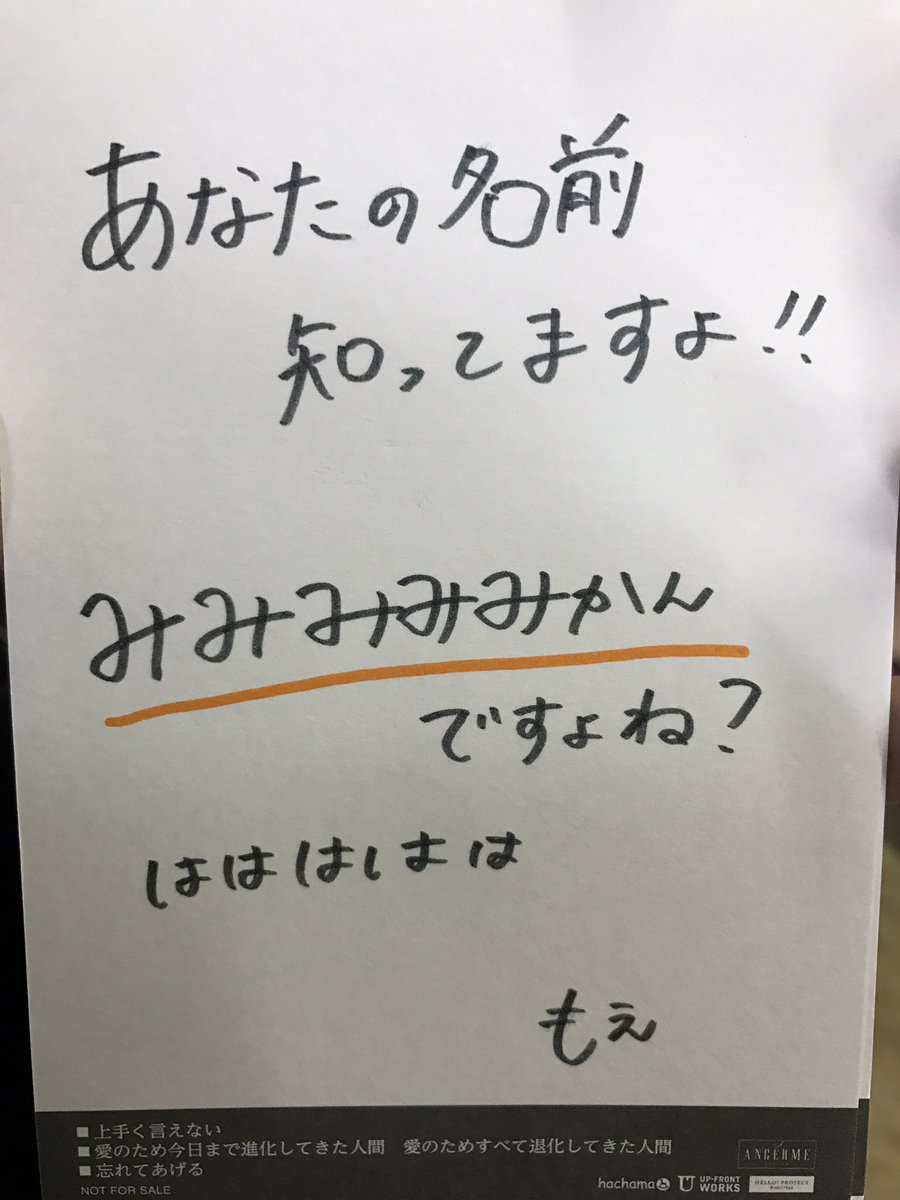 あなたの名前
知ってますよ!!
みみみみみかん
ですよね?
はははははは
もえ
■上手く言えない
■愛のため今日まで進化してきた人間 愛のためすべて退化してきた人間
■忘れてあげる
NOT FOR SALE
ANGERME
hachama
UP-FRONT WORKS
HELLO! PROJECT